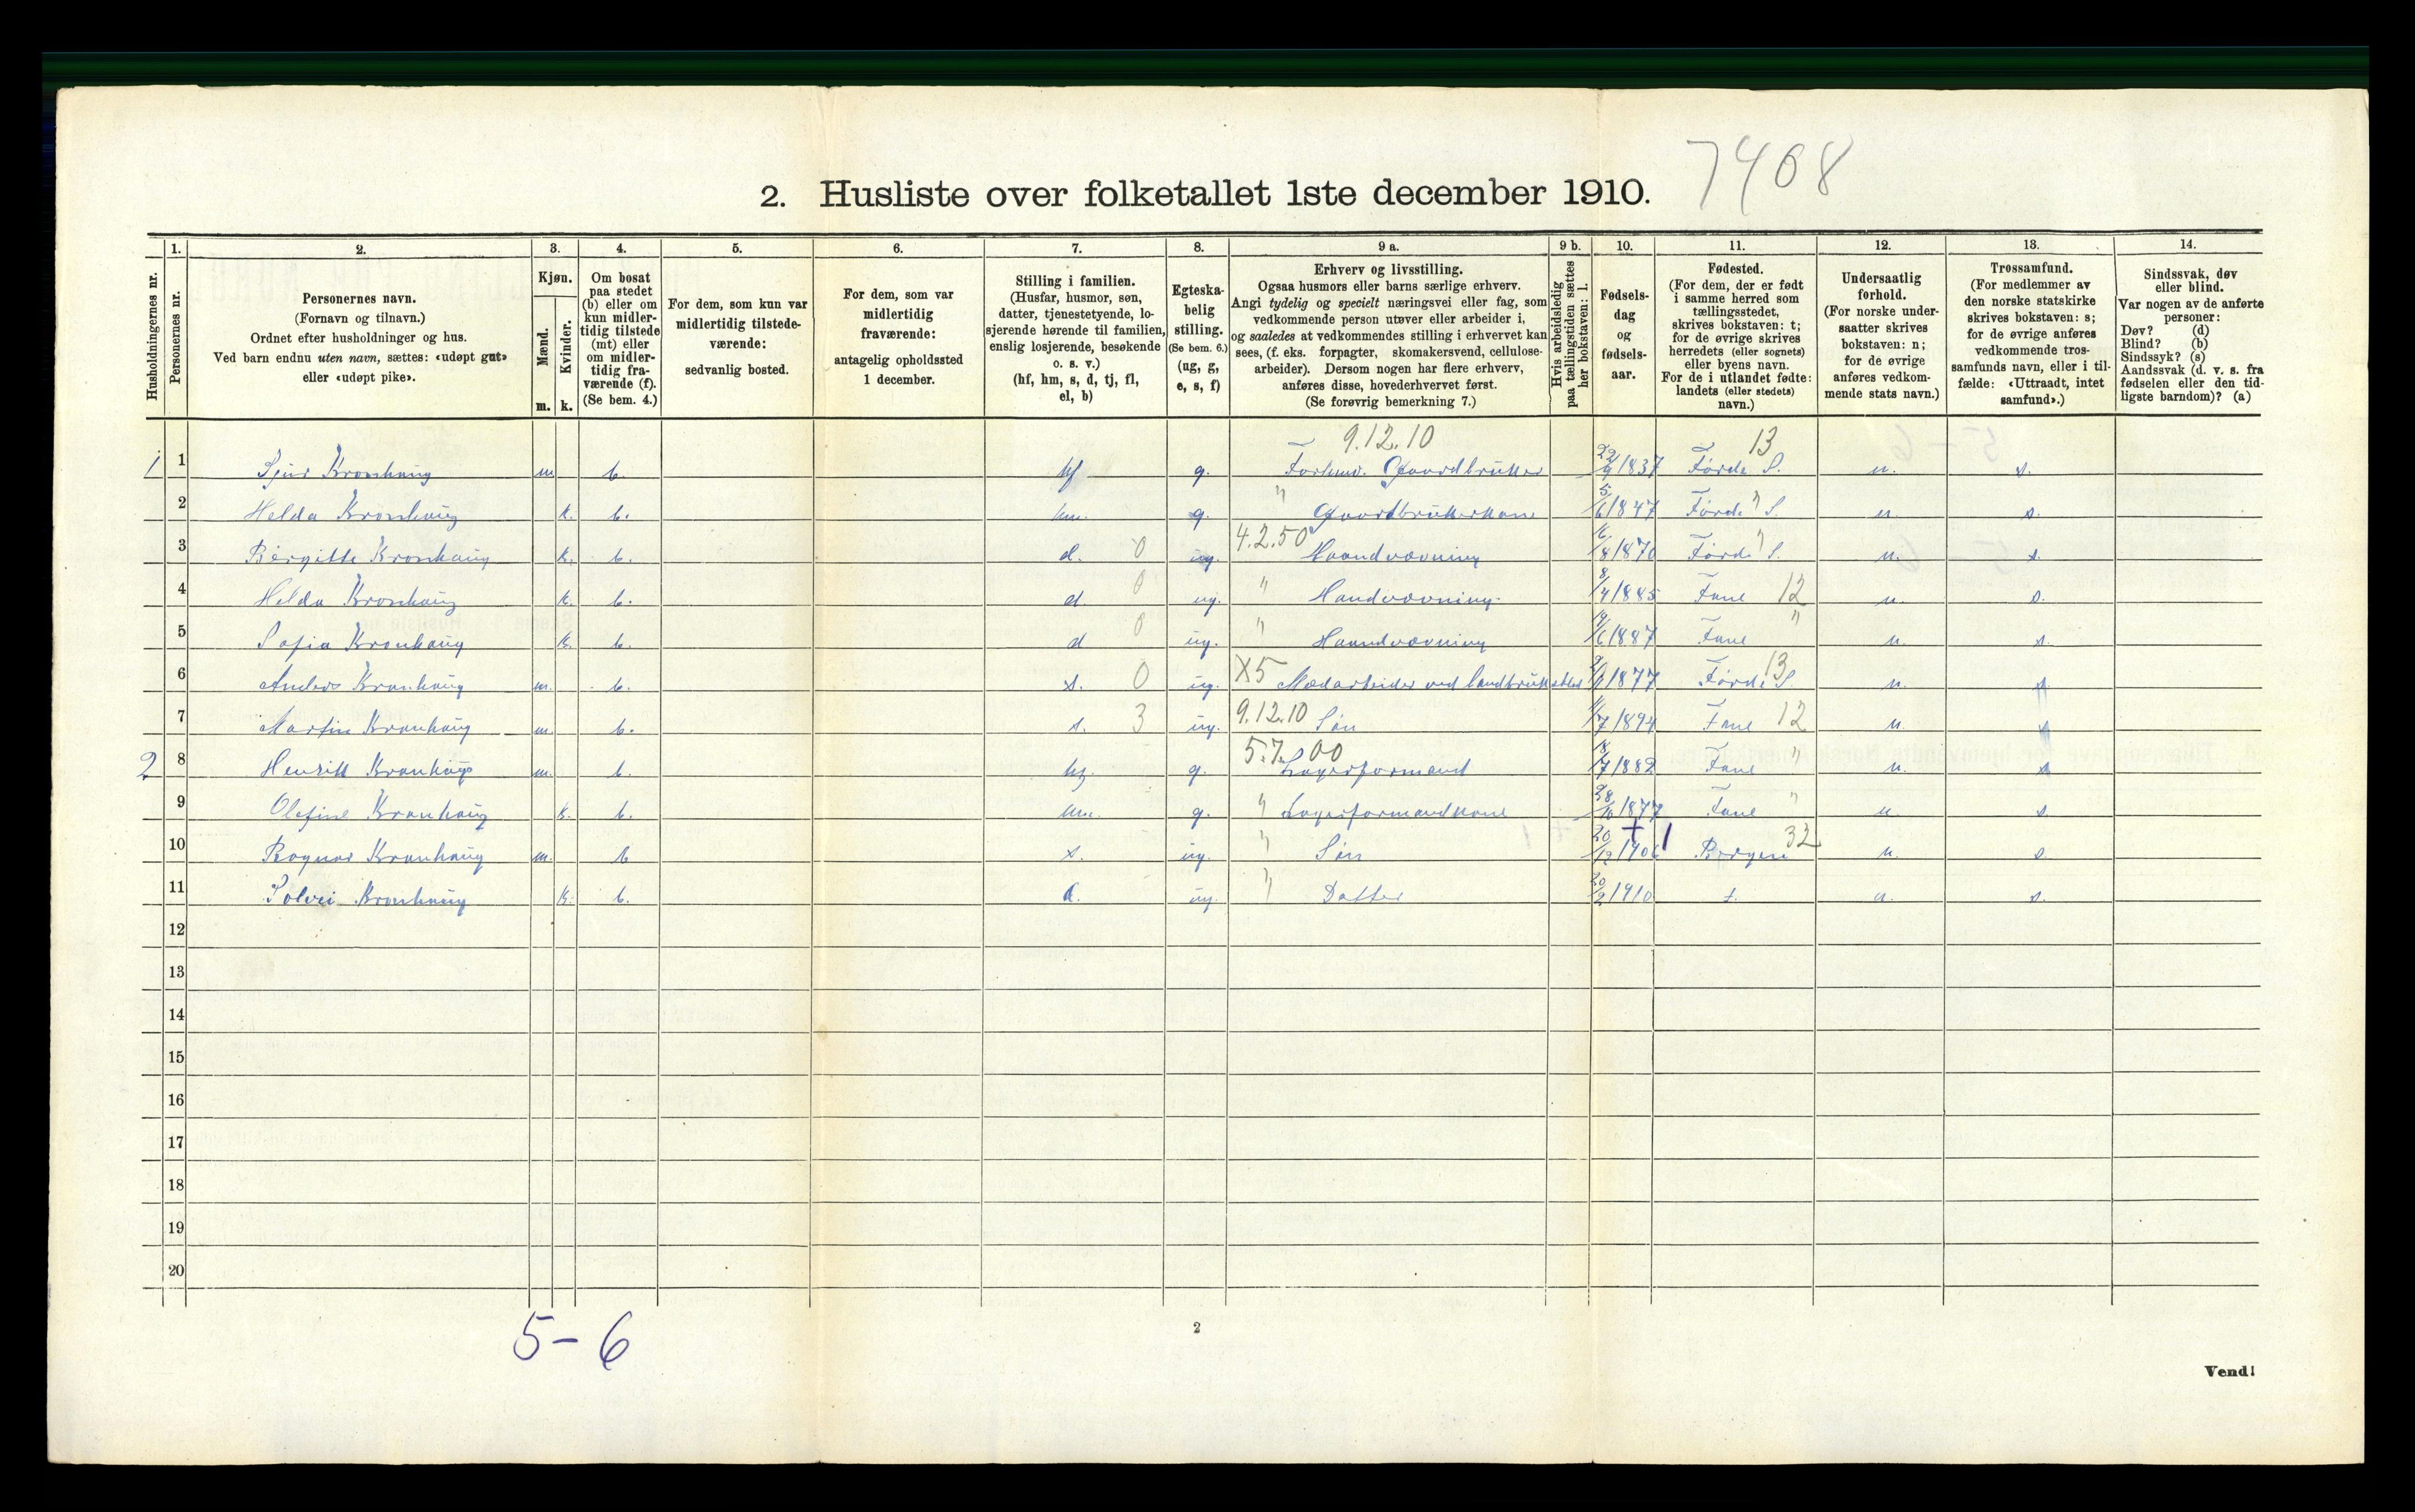 7408
2. Husliste over folketallet 1ste december 1910.
Husholdningernes nr.
1.
Personernes nr.
2.
Personernes navn.
(Fornavn og tilnavn.)
Ordnet efter husholdninger og hus.
Ved barn endnu uten navn, sættes: «udøpt gut»
eller «udøpt pike».
3.
Kjøn.
Mænd.
Kvinder.
m. k.
4.
Om bosat
paa stedet
(b) eller om
kun midler-
tidig tilstede
(mt) eller
om midler-
tidig fra-
værende (f).
(Se bem. 4.)
5.
For dem, som kun var
midlertidig tilstede-
værende:
sedvanlig bosted.
6.
For dem, som var
midlertidig
fraværende:
antagelig opholdssted
1 december.
7.
Stilling i familien.
(Husfar, husmor, søn,
datter, tjenestetyende, lo-
sjerende hørende til familien,
enslig losjerende, besøkende
o. s. v.)
(hf, hm, s, d, tj, fl,
el, b)
8.
Egteska-
belig
stilling.
(Se bem. 6.)
(ug, g,
e, s, f)
9 a.
Erhverv og livsstilling.
Ogsaa husmors eller barns særlige erhverv.
Angi tydelig og specielt næringsvei eller fag, som
vedkommende person utøver eller arbeider i,
og saaledes at vedkommendes stilling i erhvervet kan
sees, (f. eks. forpagter, skomakersvend, cellulose-
arbeider). Dersom nogen har flere erhverv,
anføres disse, hovederhvervet først.
(Se forøvrig bemerkning 7.)
9 b.
Hvis arbeidsledig
paa tællingstiden sættes
her bokstaven: l.
10.
Fødsels-
dag
og
fødsels-
aar.
11.
Fødested.
(For dem, der er født
i samme herred som
tællingsstedet,
skrives bokstaven: t;
for de øvrige skrives
herredets (eller sognets)
eller byens navn.
For de i utlandet fødte:
landets (eller stedets)
navn.)
12.
Undersaatlig
forhold.
(For norske under-
saatter skrives
bokstaven: n;
for de øvrige
anføres vedkom-
mende stats navn.)
13.
Trossamfund.
(For medlemmer av
den norske statskirke
skrives bokstaven: s;
for de øvrige anføres
vedkommende tros-
samfunds navn, eller i til-
fælde: «Uttraadt, intet
samfund».)
14.
Sindssvak, døv
eller blind.
Var nogen av de anførte
personer:
Døv? (d)
Blind? (b)
Sindssyk? (s)
Aandssvak (d. v. s. fra
fødselen eller den tid-
ligste barndom)? (a)
9.12.10 13
1 1 Sjur Kronhaug m b. hf g. Gaardbruker 22/9 1837 Førde S. n. s.
2 Helda Kronhaug k. b. hm. g. " Gaardbrukerkone 5/6 1847 Førde " S. n. s.
4.2.50
3 Birgitte Kronhaug k. b. d. 0 ug. Haandvævning /8 1870 Førde " S. n. s.
4 Helda Kronhaug k. b. d. 0 ug. " Handvævning 8/4 1885 Fane 12 n. s.
5 Sofia Kronhaug k. b. d 0 ug. " Haandvævning /6 1887 Fane " n. s.
6 Anders Kronhaug m. b. s. 0 ug. X5 Medarbeider ved landbruk 1877 Førde 13 S. n. s.
7 Martin Kronhaug m. b. s. 3 ug. 9.12.10 Søn /7 1894 Fane 12 n. s.
5.7.00
2 8 Henrik Kronhaug m. b. hf. g. Lagerformand 18/7 1882 Fane " n. s.
9 Olefine Kronhaug k. b. hm. g. " Lagerformandkone 28/ 1877 Fane " n. s.
10 Ragnar Kronhaug m. b s. ug. " Søn 20/12 1906 + 1 Bergen 32 n. s.
11 Solvei Kronhaug k. b. d. ug. " Datter 20/2 1910 t. n. s.
12
13
14
15
16
17
18
19
20
5-6
2
Vend!